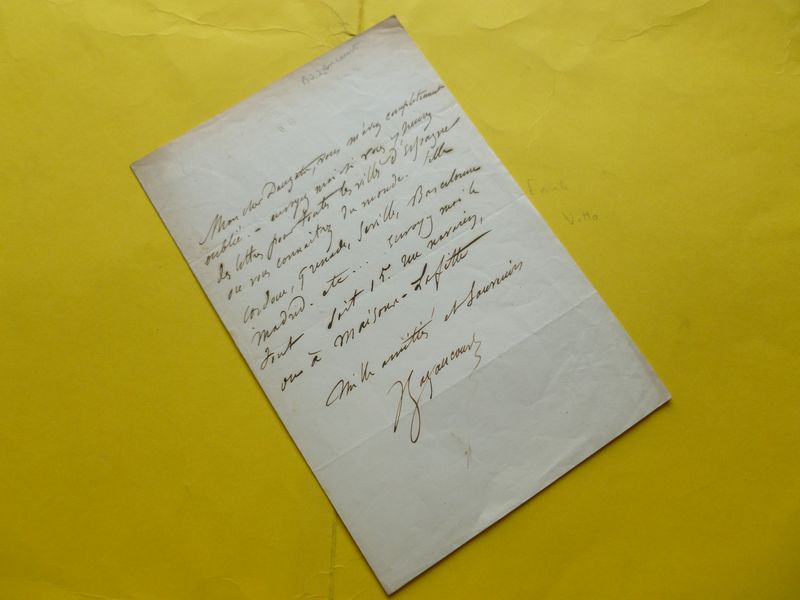 Bazancourt
Mon cher Dauzats, vous m'avez complètement
oublié. - envoyez moi si vous y pensez
des lettres pour toutes les villes d'Espagne
ou vous connaitrez du monde.
Cordoue, Grenade, Séville, Barcelonne
Madrid. etc... envoyez moi le
tout soit 15 rue
ou à Maisons-Lafitte
Mille amitiés et souvenirs
Bazancourt
Emile